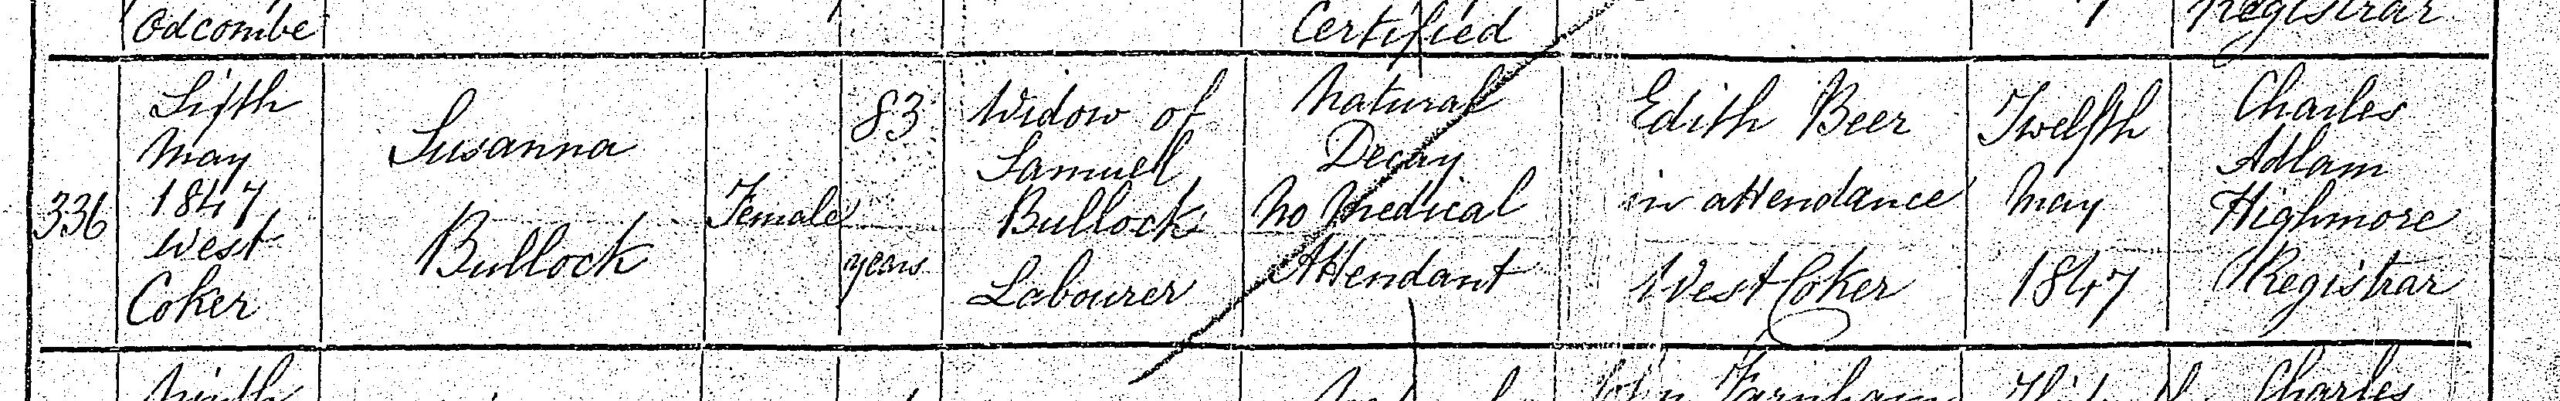 Odcombe
Certified
Registrar
336
Sixth
May
1847
West
Coker
Susanna
Bullock
Female
83
years
Widow of
Samuel
Bullock
Labourer
Natural
Decay
No Medical
Attendant
Edith Beer
in attendance
West Coker
Twelfth
May
1847
Charles
Adlam
Highmore
Registrar
Ninth
John Farnham
Charles